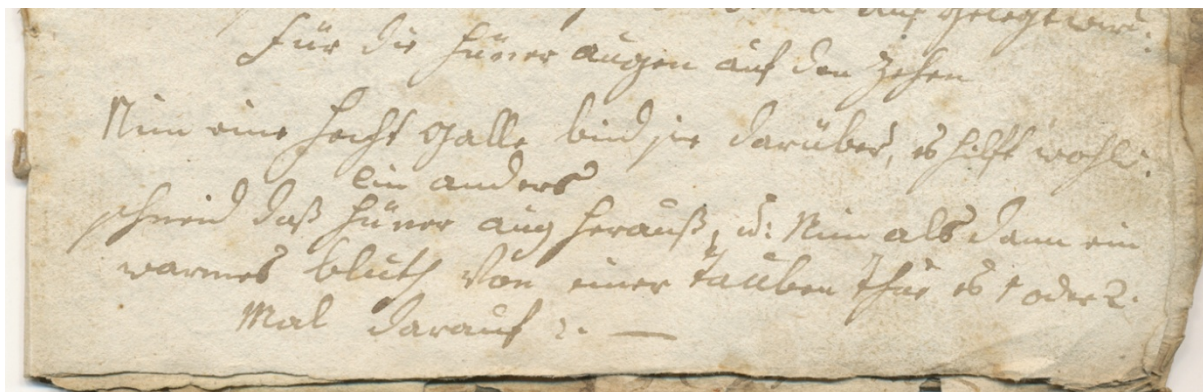 auf gelegt wird.
für die hüner augen auf den Zehen
Nim eine hecht galle, bind sie darüber, es hilfft wohl:
Ein anders
schneid daß hüner aug herauß, u: Nim als dann ein
warmes bluth von einer tauben thue es 1 oder 2.
Mal darauf :. —